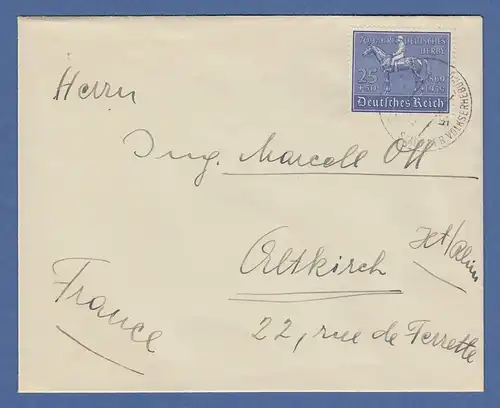 70 JAHRE DEUTSCHES
DERBY
25
+50
1869
1939
Deutsches Reich
VOLKSERHEBUNG
Herrn
Ing. Marcell Ott
Altkirch
Ht/Rhin
22, rue de Ferrette
France